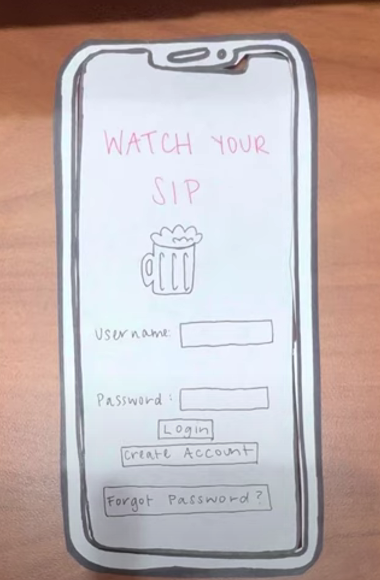 WATCH YOUR
SIP
Username:
Password:
Login
Create Account
Forgot Password?